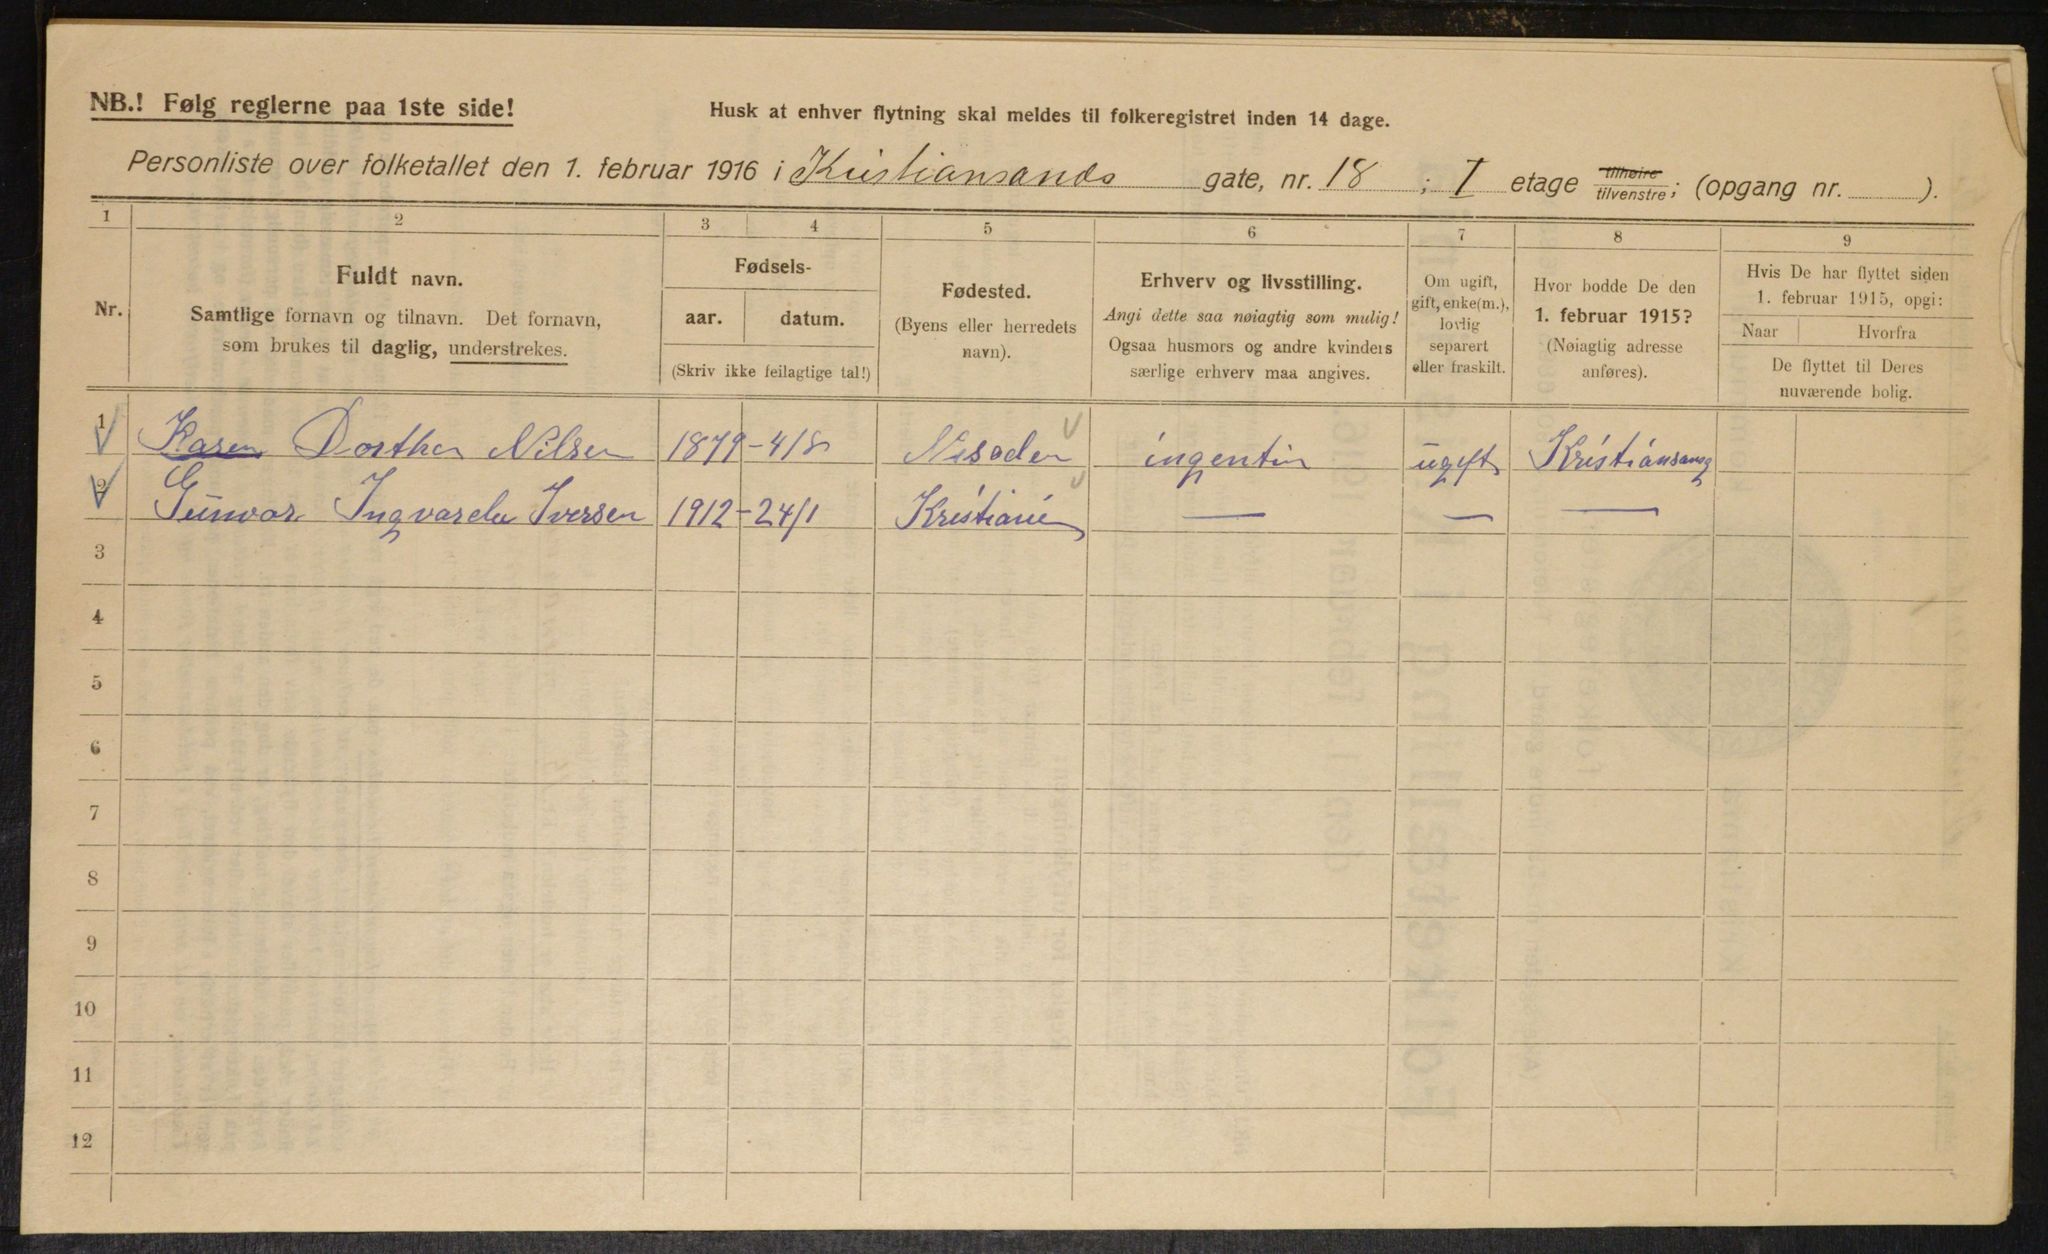 NB.! Følg reglerne paa 1ste side!
Husk at enhver flytning skal meldes til folkeregistret inden 14 dage.
Personliste over folketallet den 1. februar 1916 i Kristiansands gate, nr. 18 ; I etage tilhøire tilvenstre; (opgang nr. ).
1 2 3 4 5 6 7 8 9
Nr.
Fuldt navn.
Samtlige fornavn og tilnavn. Det fornavn,
som brukes til daglig, understrekes.
Fødsels-
aar. datum.
(Skriv ikke feilagtige tal!)
Fødested.
(Byens eller herredets
navn).
Erhverv og livsstilling.
Angi dette saa nøiagtig som mulig!
Ogsaa husmors og andre kvinders
særlige erhverv maa angives.
Om ugift,
gift, enke(m.),
lovlig
separert
eller fraskilt.
Hvor bodde De den
1. februar 1915?
(Nøiagtig adresse
anføres).
Hvis De har flyttet siden
1. februar 1915, opgi:
Naar Hvorfra
De flyttet til Deres
nuværende bolig.
1 Karen Dorthea Nilsen 1879 - 4/8 Nesodden ingenting ugift Kristiansansg
2 Gunvor Ingvarda Iversen 1912 - 24/1 Kristiania — — —
3
4
5
6
7
8
9
10
11
12